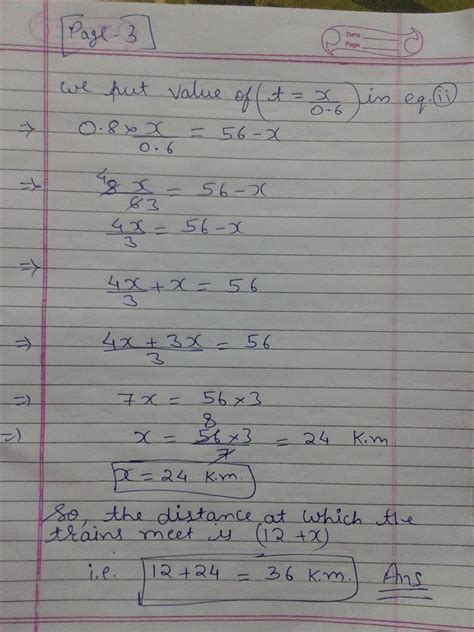 Page-3
Date
Page
we put value of (t = x/0.6) in eq. (ii)
⇒ 0.8 × x/0.6 = 56-x
⇒ 4 8 x/6 3 = 56-x
4x/3 = 56-x
⇒ 4x/3 + x = 56
⇒ 4x + 3x/3 = 56
⇒ 7x = 56×3
⇒ x = 8 56×3/7 = 24 K.m.
x = 24 K.m.
So, the distance at which the
trains meet is (12 +x)
i.e. 12+24 = 36 K.m. Ans